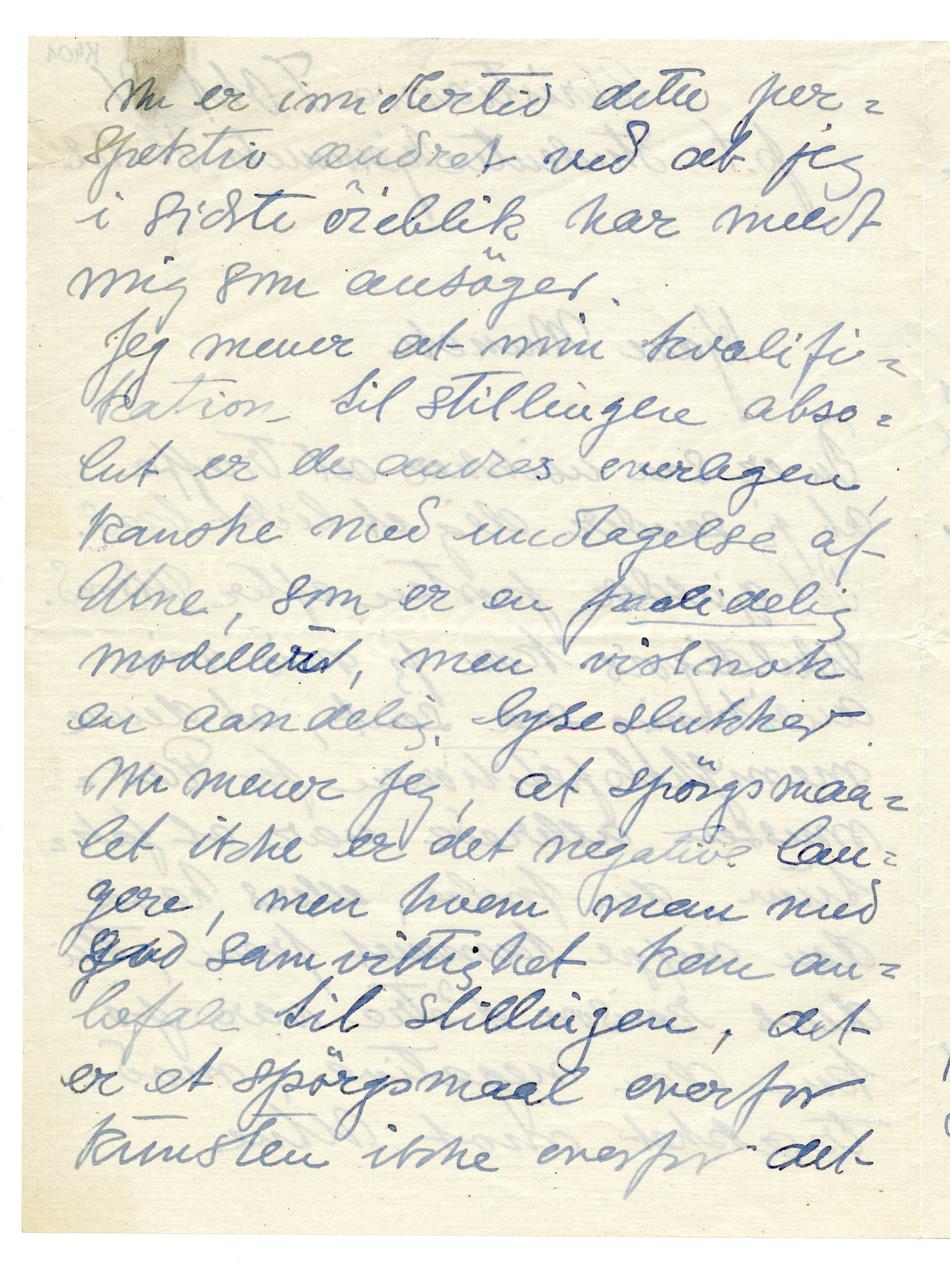 Nu er imidlertid dette per=
spektiv ændret ved at jeg
i sidste öieblik har meldt
mig som ansöger.
Jeg mener at min kvalifi=
kation til stillingen abso=
lut er de andres overlegen,
kanske med undtagelse af
Utne, som er en paalidelig
modellør, men vistnok
en aandelig lyseslukker.
Nu mener jeg, at spörgsmaa=
let ikke er det negative læn=
gere, men hvem man med
god samvittighet kan an=
befale til stillingen, det
er et spörgsmaal overfor
kunsten ikke overfor det